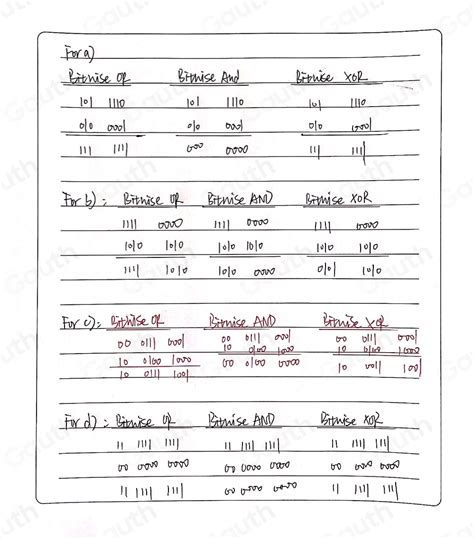 For a)
Bitwise OR Bitwise And Bitwise XOR
101 1110 101 1110 101 1110
010 0001 010 0001 010 0001
111 1111 000 0000 111 1111
For b): Bitwise OR Bitwise AND Bitwise XOR
1111 0000 1111 0000 1111 0000
1010 1010 1010 1010 1010 1010
1111 1010 1010 0000 0101 1010
For c): Bitwise OR Bitwise AND Bitwise XOR
00 0111 0001 00 0111 0001 00 0111 0001
10 0100 1000 10 0100 1000 10 0100 1000
10 0111 1001 00 0100 0000 10 0011 1001
For d): Bitwise OR Bitwise AND Bitwise XOR
11 1111 1111 11 1111 1111 11 1111 1111
00 0000 0000 00 0000 0000 00 0000 0000
11 1111 1111 00 0000 0000 11 1111 1111